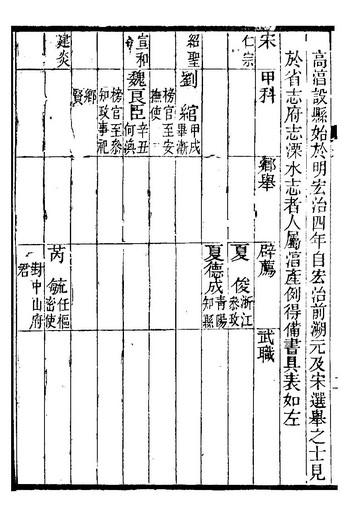 高淳設縣始於明宏治四年自宏治前溯元及宋選舉之士見
於省志府志溧水志者人屬淳產例得備書具表如左
宋 甲科 鄉舉 辟薦 武職
仁宗
夏俊浙江
參政
夏德成青陽
知縣
紹聖
劉綰甲戌
畢漸
榜官至安
撫使
宣和
魏良臣辛丑
何㮚
榜官至參
知政事祀
鄉
賢
建炎
芮毓任樞
密使
封中山府
君